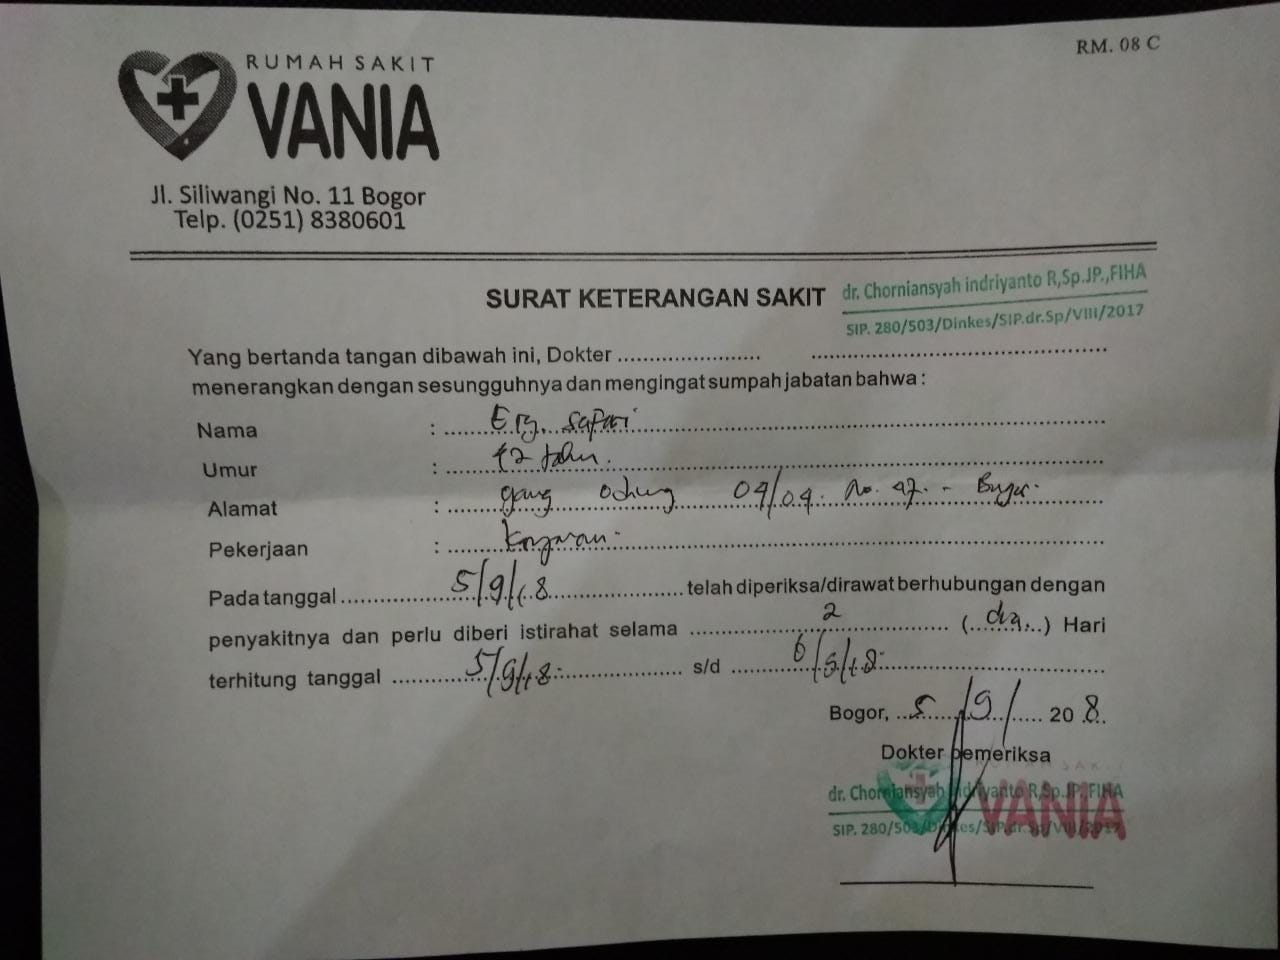 RM. 08 C
RUMAH SAKIT
VANIA
Jl. Siliwangi No. 11 Bogor
Telp. (0251) 8380601
SURAT KETERANGAN SAKIT
dr. Chorniansyah indriyanto R,Sp.JP.,FIHA
SIP. 280/503/Dinkes/SIP.dr.Sp/VIII/2017
Yang bertanda tangan dibawah ini, Dokter ...................... .............................................
menerangkan dengan sesungguhnya dan mengingat sumpah jabatan bahwa :
Nama : Safari
Umur : 42 tahun.
Alamat : gang 04/04. No. 47. - Bogor.
Pekerjaan :
Pada tanggal 5/9/18 telah diperiksa/dirawat berhubungan dengan
penyakitnya dan perlu diberi istirahat selama 2 (dua) Hari
terhitung tanggal 5/9/18 s/d 6/9/18
Bogor, 5/9/ 20 8.
Dokter pemeriksa
dr. Chorniansyah indriyanto R,Sp.JP.,FIHA
VANIA
SIP. 280/503/Dinkes/SIP.dr.Sp/VIII/2017